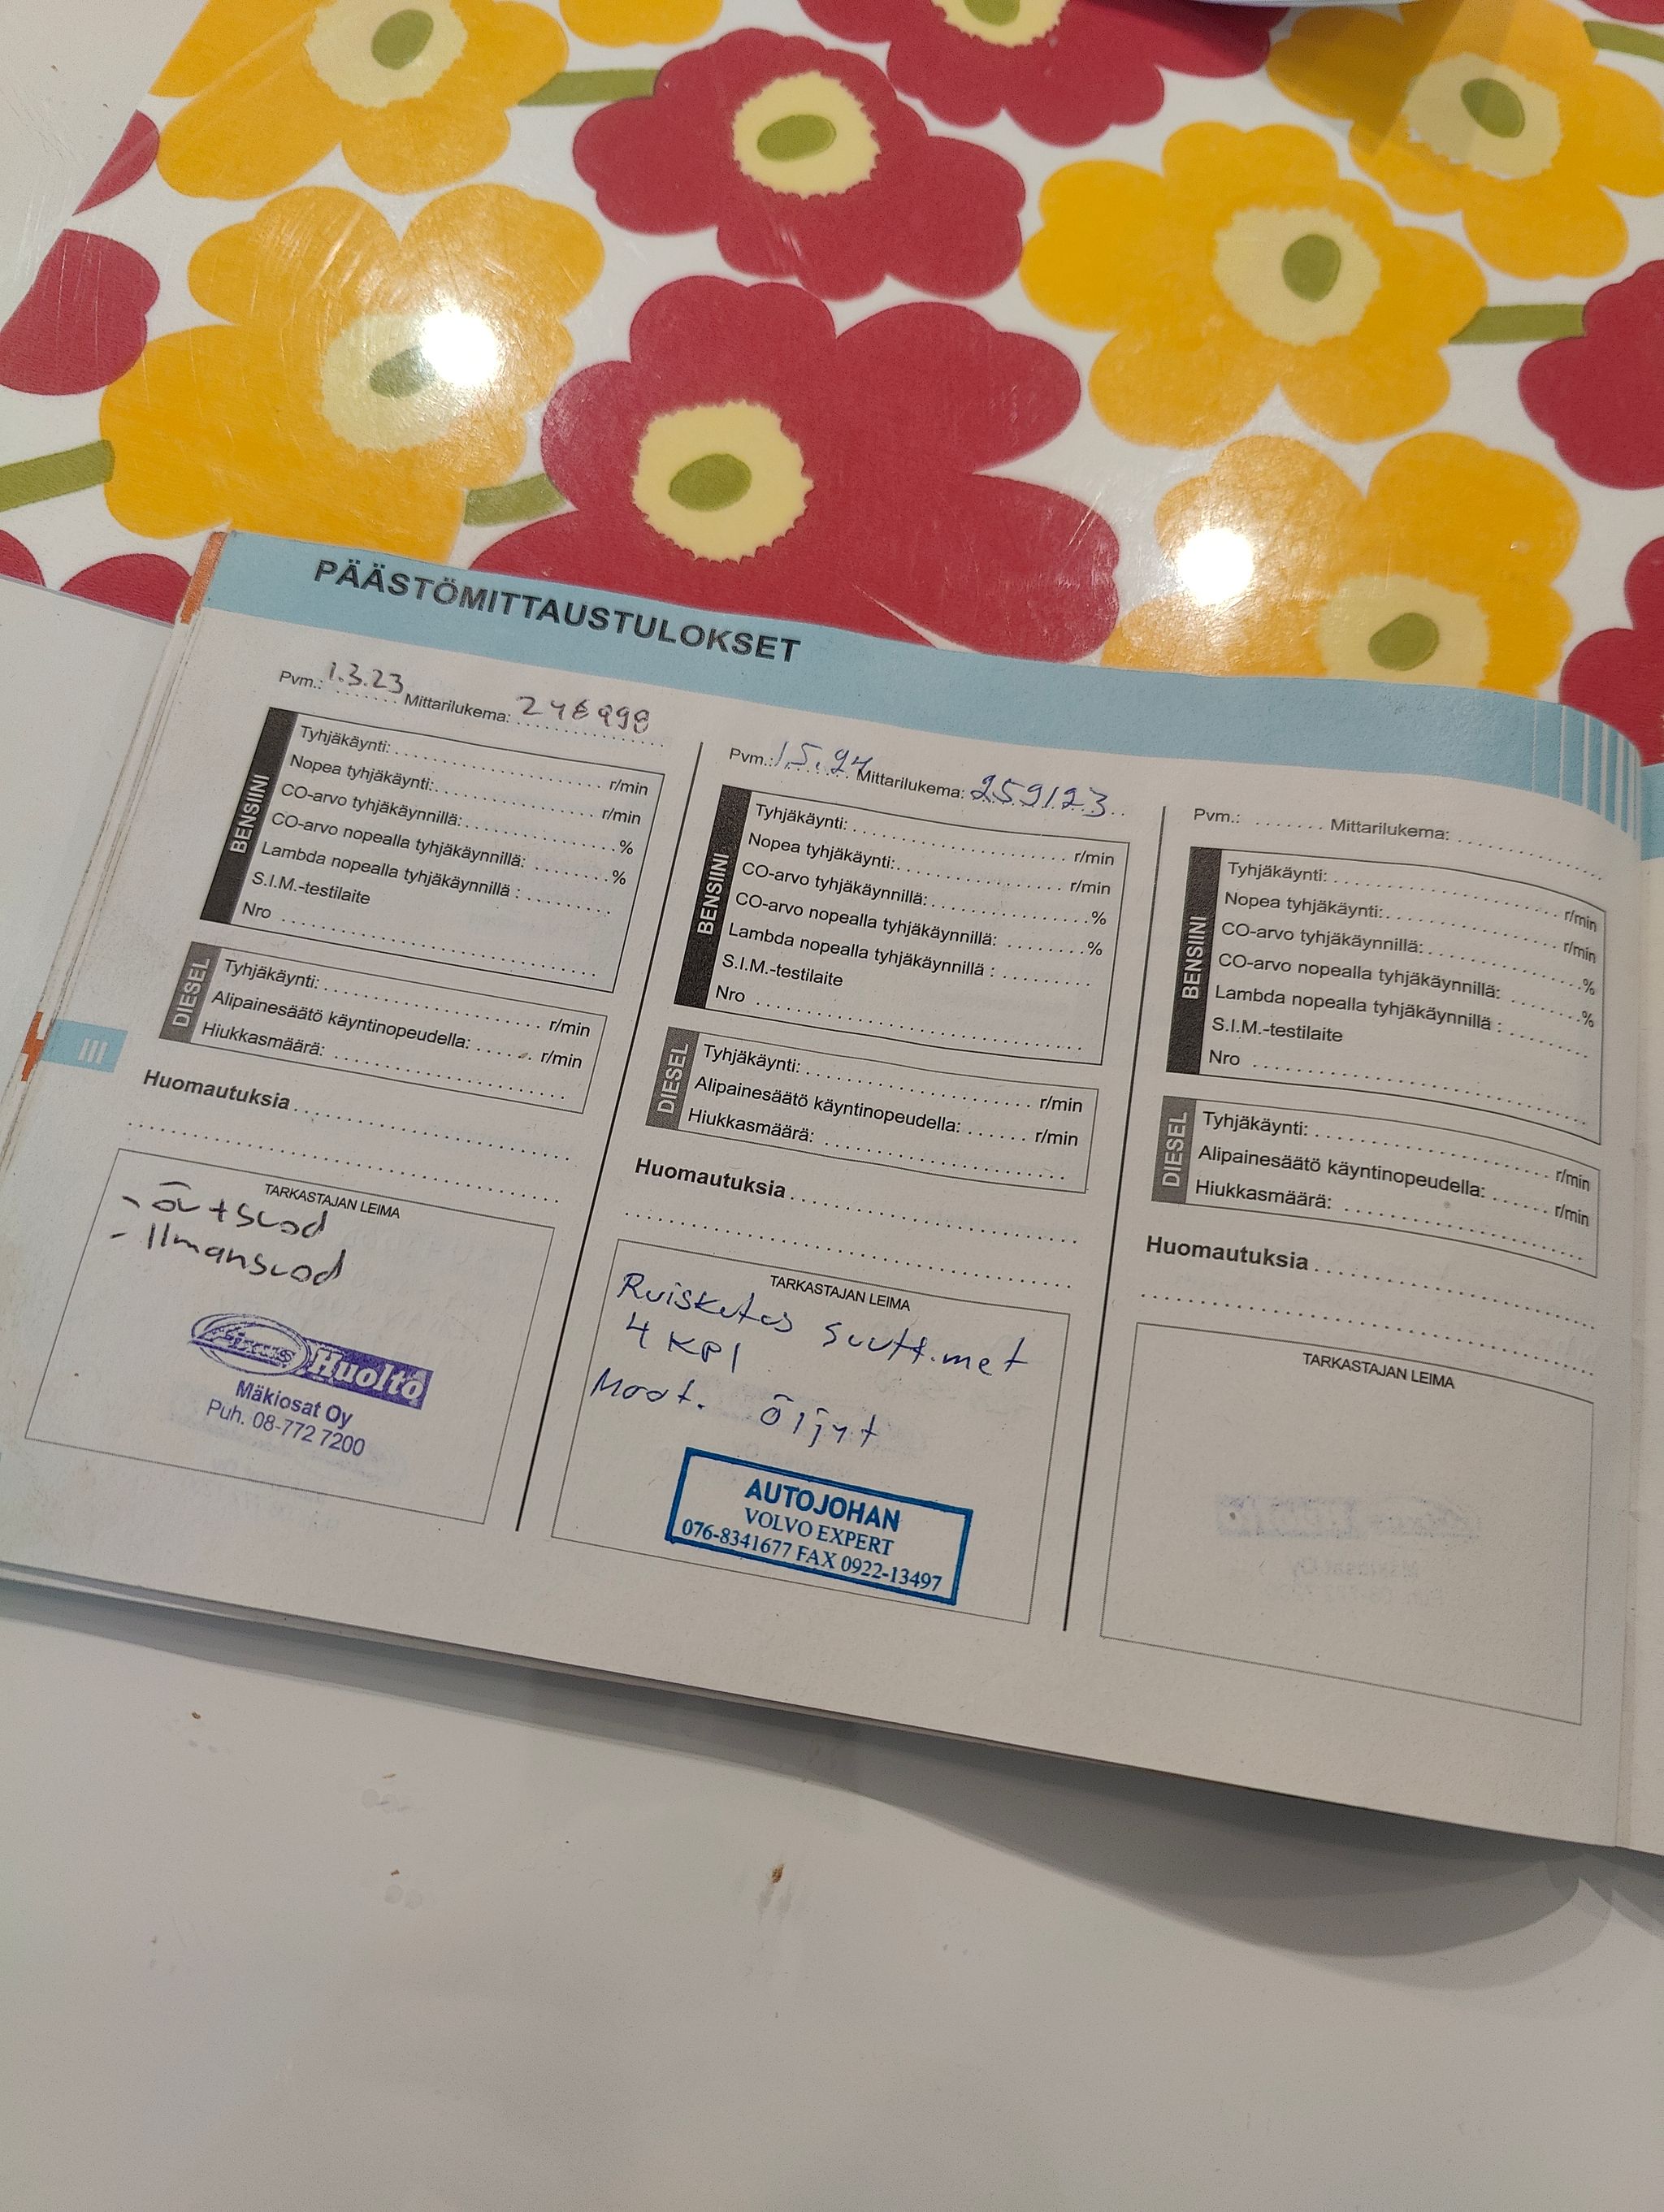 PÄÄSTÖMITTAUSTULOKSET
Pvm.: 1.3.23 Mittarilukema: 248998
BENSIINI
Tyhjäkäynti: r/min
Nopea tyhjäkäynti: r/min
CO-arvo tyhjäkäynnillä: %
CO-arvo nopealla tyhjäkäynnillä: %
Lambda nopealla tyhjäkäynnillä :
S.I.M.-testilaite
Nro
DIESEL
Tyhjäkäynti: r/min
Alipainesäätö käyntinopeudella: r/min
Hiukkasmäärä:
III
Huomautuksia
TARKASTAJAN LEIMA
- öv+suod
- Ilmansuod
Fixus Huolto
Mäkiosat Oy
Puh. 08-772 7200
Pvm.: 1.5.24 Mittarilukema: 259123
BENSIINI
Tyhjäkäynti: r/min
Nopea tyhjäkäynti: r/min
CO-arvo tyhjäkäynnillä: %
CO-arvo nopealla tyhjäkäynnillä: %
Lambda nopealla tyhjäkäynnillä :
S.I.M.-testilaite
Nro
DIESEL
Tyhjäkäynti: r/min
Alipainesäätö käyntinopeudella: r/min
Hiukkasmäärä:
Huomautuksia
TARKASTAJAN LEIMA
Ruiskutus suutt.met
4 KPl
Moot. öljyt
AUTOJOHAN
VOLVO EXPERT
076-8341677 FAX 0922-13497
Pvm.: Mittarilukema:
BENSIINI
Tyhjäkäynti: r/min
Nopea tyhjäkäynti: r/min
CO-arvo tyhjäkäynnillä: %
CO-arvo nopealla tyhjäkäynnillä: %
Lambda nopealla tyhjäkäynnillä :
S.I.M.-testilaite
Nro
DIESEL
Tyhjäkäynti: r/min
Alipainesäätö käyntinopeudella: r/min
Hiukkasmäärä:
Huomautuksia
TARKASTAJAN LEIMA